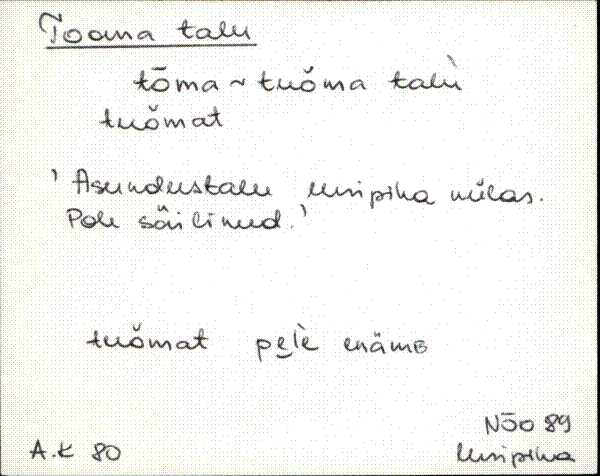 Tooma talu
tōma ~ tuŏma talù
tuŏmat
'Asundustalu Unipiha külas.
Pole säilinud.'
tuŏmat pe̮lè enämʙ
Nõo 89
A.K 80
Unipiha